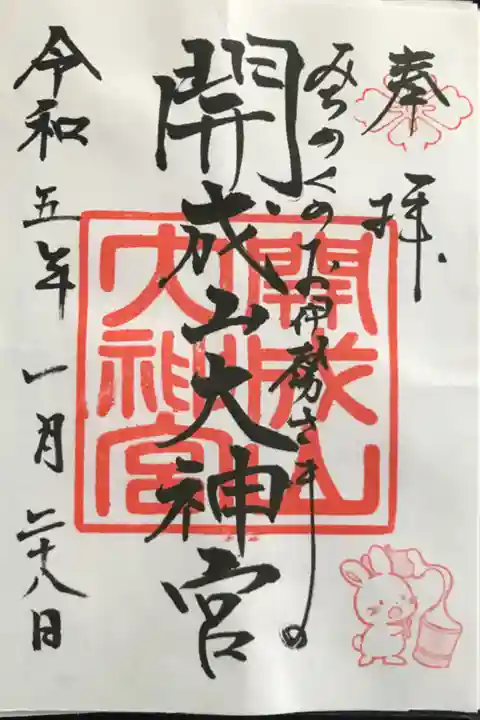 奉拝
みちのくのお伊勢さま
開成山大神宮
開成山
大神宮
令和五年一月二十八日